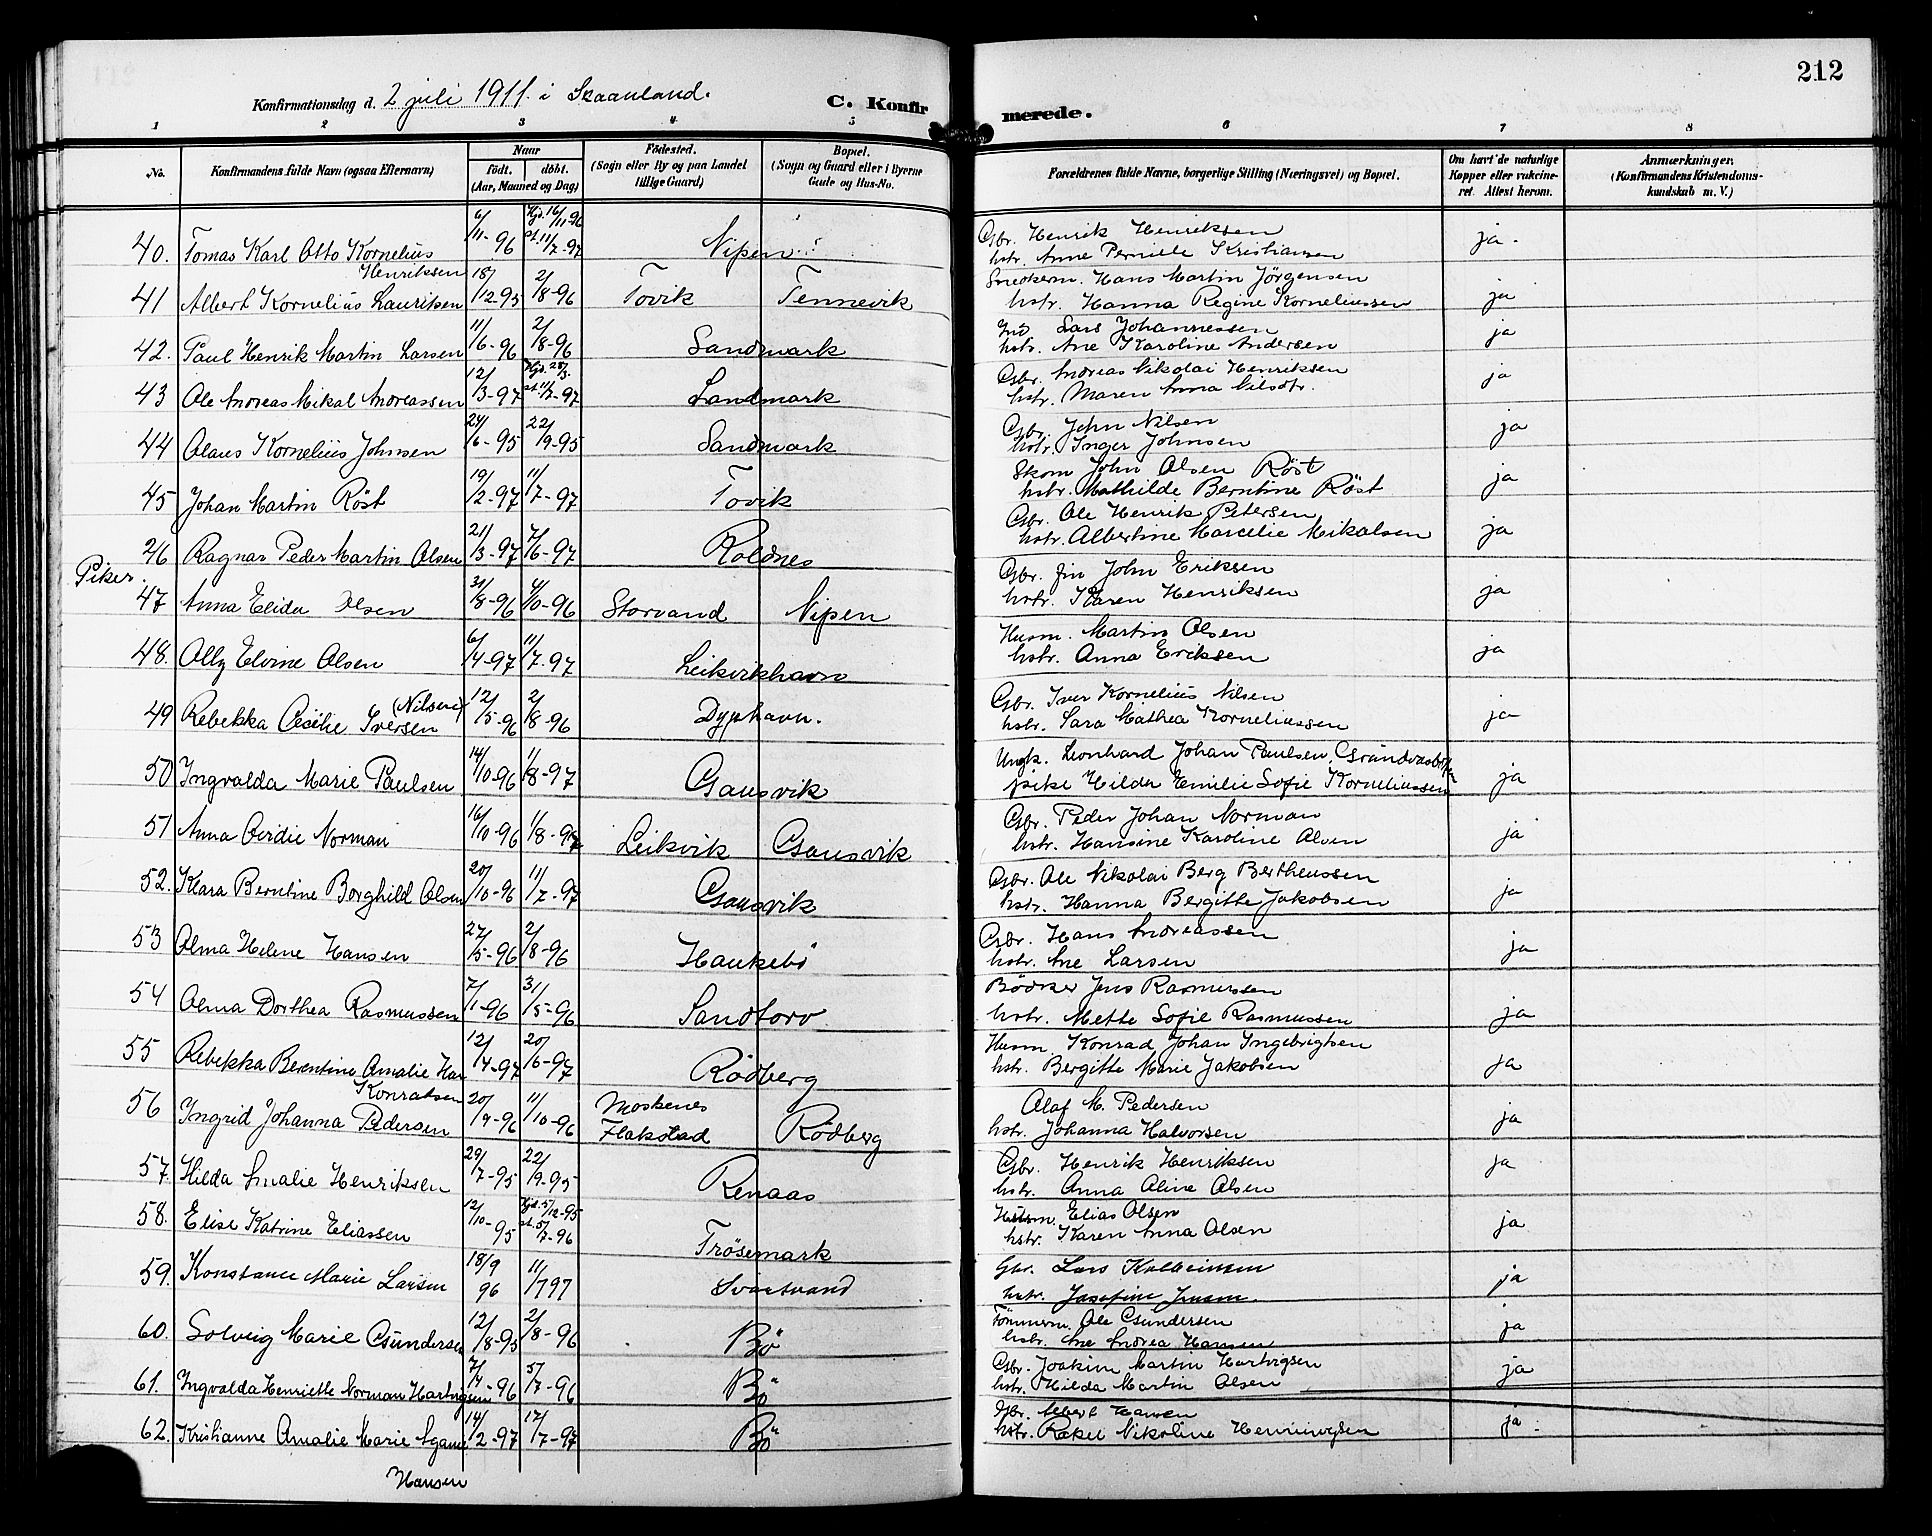 212
Konfirmationsdag d. 2 juli 1911. i Skaanland.
C. Konfirmerede.
1 2 3 4 5 6 7 8
No. Konfirmandens fulde Navn (ogsaa Efternavn)
Naar
født. døbt.
(Aar, Maaned og Dag)
Fødested.
(Sogn eller By og paa Landet
tillige Gaard)
Bopæl.
(Sogn og Gaard eller i Byerne
Gade og Hus-No.
Forældrenes fulde Navne, borgerlige Stilling (Næringsvei) og Bopæl.
Om havt de naturlige
Kopper eller vakcine-
ret. Attest herom.
Anmærkninger.
(Konfirmandens Kristendoms-
kundskab m. V.)
40. Tomas Karl Otto Kornelius Henriksen 6/11-96 Hjd. 16/11-96 st. 11/7-97 Nipen Gbr. Henrik Henriksen ja.
hstr. Anne Pernille Kristiansen
41 Albert Kornelius Lauriksen 18/12-95 2/8-96 Tovik Tennevik Smedkem. Hans Martin Jörgensen ja
hstr. Hanna Regine Korneliussen
42. Paul Henrik Martin Larsen 11/6-96 2/8-96 Sandmark Ind Lars Johannessen ja
hstr. Ane Karoline Andersen
43 Ole Andreas Mikal Andreassen 12/3-97 Hjd. 28/3. st. 11/7-97 Sandmark Gbr. Andreas Nikolai Henriksen ja
hstr. Maren Anna Nilsdtr.
44 Olaus Kornelius Johnsen 24/6-95 22/9-95 Sandmark Gbr. John Nilsen ja
hstr. Inger Johnsen
45 Johan Martin Röst 19/2-97 11/7-97 Tovik Skom John Olsen Röst ja
hstr. Mathilde Berntine Röst
46 Ragnar Peder Martin Olsen 21/3-97 7/6-97 Roldnes Gbr. Ole Henrik Petersen ja
hstr. Albertine Marcelie Mikalsen
Piker.
47 Anna Elida Olsen 31/8-96 4/10-96 Storvand Nipen Gbr. fin John Eriksen ja
hstr. Karen Henriksen
48. Olly Elvine Olsen 6/4-97 11/7-97 Leikvikhavn Husm. Martin Olsen ja
hstr. Anna Eriksen
49 Rebekka Cecilie Iversen (Nilsen) 12/5-96 2/8-96 Dyphavn. Gbr. Iver Kornelius Nilsen ja
hstr. Sara Mathea Korneliussen
50 Ingvalda Marie Paulsen 14/10-96 1/8-97 Gausvik Ungk. Leonhard Johan Paulsen ja
pike Hilda Emilie Sofie Korneliussen
51 Anna Gerdie Norman 16/10-96 1/8-97 Leikvik Gausvik Gbr. Peder Johan Norman ja
hstr. Hansine Karoline Olsen
52. Klara Berntine Borghild Olsen 20/10-96 11/7-97 Gausvik Gbr. Ole Nikolai Berg Bertheussen ja
hstr. Hanna Bergitte Jakobsen
53 Alma Helene Hansen 27/5-96 2/8-96 Haukebö Gbr. Hans Andreassen ja
hstr. Ane Larsen
54 Alma Dorthea Rasmussen 7/1-96 31/5-96 Sandtorv Bödker Jens Rasmussen ja
hstr. Mette Sofie Rasmussen
55 Rebekka Berntine Amalie Har Konradsen 12/4-97 20/6-97 Rödberg Husm. Konrad Johan Ingebrigtsen ja
hstr. Bergitte Marie Jakobsen
56 Ingrid Johanna Pedersen 20/9-96 11/10-96 Moskenes Flakstad Rödberg Olaf M. Pedersen ja
hstr. Johanna Halvorsen
57. Hilda Amalie Henriksen 29/7-95 22/9-95 Renaas Gbr. Henrik Henriksen ja
hstr. Anna Aline Olsen
58. Elise Katrine Eliassen 12/10-95 Hjd. 5/12-95 st. 5/7-96 Trösemark Husm. Elias Olsen ja
hstr. Karen Anna Olsen
59. Konstance Marie Larsen 18/9 96 11/7 97 Svartvand Gbr. Lars Kolbeinsen ja
hstr. Josefine Jensen.
60. Solveig Marie Gundersen 12/8-95 2/8-96 Bö Tömmerm. Ole Gundersen ja
hstr. Ane Andrea Hansen
61. Ingvalda Henriette Norman Hartvigsen 7/4-96 5/7-96 Bö Gbr. Joakim Martin Hartvigsen ja
hstr. Hilda Martin Olsen
62. Kristianne Amalie Marie Agane Hansen 14/2-97 12/7-97 Bö Gbr. Albert Hansen ja
hstr. Rakel Nikoline Henningsen